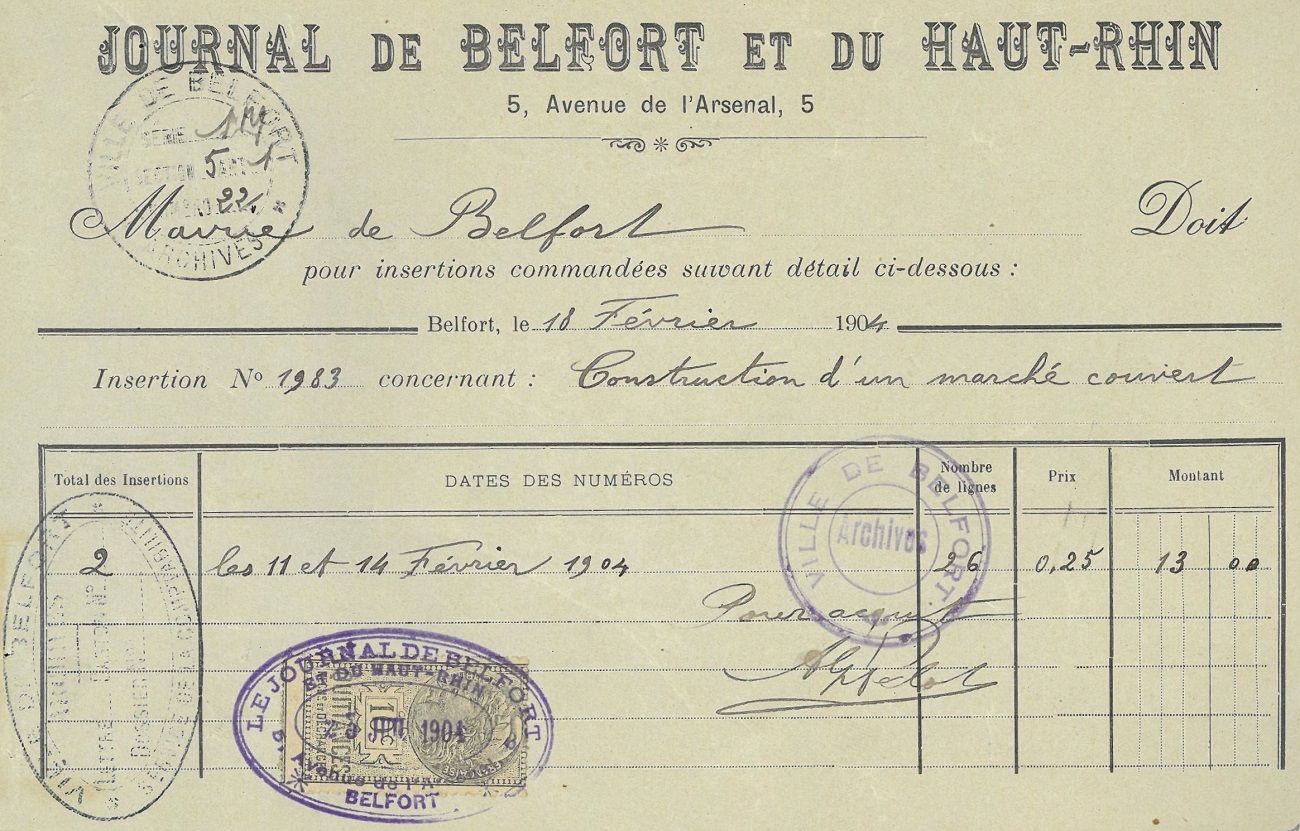 JOURNAL DE BELFORT ET DU HAUT-RHIN
5, Avenue de l'Arsenal, 5
VILLE DE BELFORT
SÉRIE 1M
SECTION 5 ART 1
22
ARCHIVES
Mairie de Belfort Doit
pour insertions commandées suivant détail ci-dessous :
Belfort, le 18 Février 1904
Insertion No 1983 concernant : Construction d'un marché couvert
Total des Insertions DATES DES NUMÉROS Nombre de lignes Prix Montant
VILLE DE BELFORT
Archives
2 les 11 et 14 Février 1904 26 0,25 13 00
Pour acquit
VILLE DE BELFORT
DOSSIER
SERVICE DE LA COMPTABILITÉ
LE JOURNAL DE BELFORT
ET DU HAUT-RHIN
QUITTANCES
10c
1904
Avenue de l'A
BELFORT